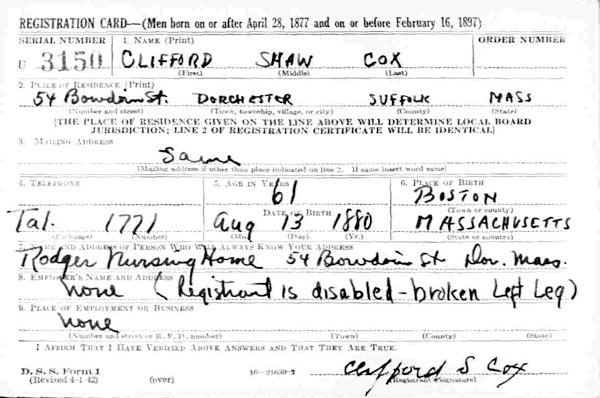 REGISTRATION CARD—(Men born on or after April 28, 1877 and on or before February 16, 1897)
SERIAL NUMBER 1. NAME (Print) ORDER NUMBER
U 3150 CLIFFORD SHAW COX
(First) (Middle) (Last)
2. PLACE OF RESIDENCE (Print)
54 Bowdoin St. DORCHESTER SUFFOLK MASS
(Number and street) (Town, township, village, or city) (County) (State)
[THE PLACE OF RESIDENCE GIVEN ON THE LINE ABOVE WILL DETERMINE LOCAL BOARD
JURISDICTION; LINE 2 OF REGISTRATION CERTIFICATE WILL BE IDENTICAL]
3. MAILING ADDRESS
Same
[Mailing address if other than place indicated on line 2. If same insert word same]
4. TELEPHONE 5. AGE IN YEARS 6. PLACE OF BIRTH
61 BOSTON
DATE OF BIRTH (Town or county)
Tal. 1771 Aug 13 1880 MASSACHUSETTS
(Exchange) (Number) (Mo.) (Day) (Yr.) (State or country)
7. NAME AND ADDRESS OF PERSON WHO WILL ALWAYS KNOW YOUR ADDRESS
Rodger Nursing Home 54 Bowdoin St Dor. Mass.
8. EMPLOYER'S NAME AND ADDRESS
none (Registrant is disabled - broken Left Leg)
9. PLACE OF EMPLOYMENT OR BUSINESS
none
(Number and street or R. F. D. number) (Town) (County) (State)
I AFFIRM THAT I HAVE VERIFIED ABOVE ANSWERS AND THAT THEY ARE TRUE.
D. S. S. Form 1
(Revised 4-1-42) (over) 16—21630-2 Clifford S Cox
(Registrant's signature)